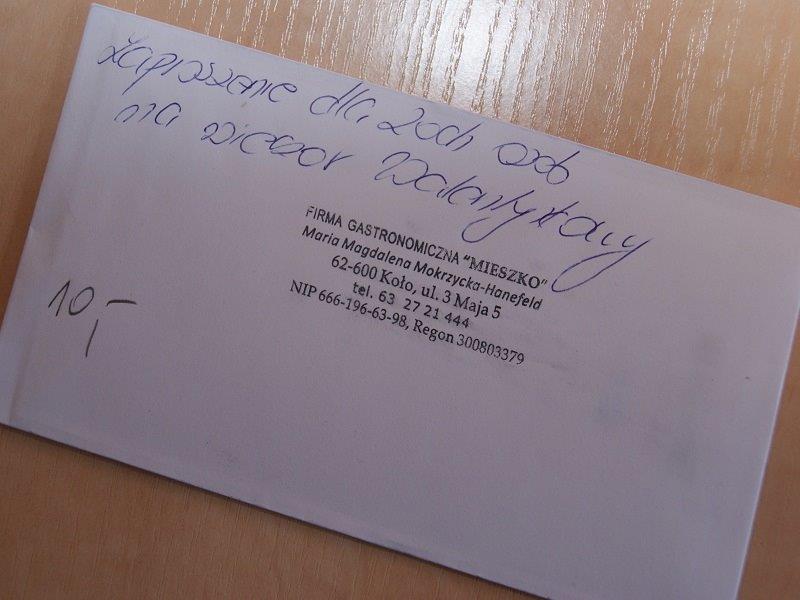 Zaproszenie dla 2och osób
na wieczór Walentynkowy
FIRMA GASTRONOMICZNA "MIESZKO"
Maria Magdalena Mokrzycka-Hanefeld
62-600 Koło, ul. 3 Maja 5
tel. 63 27 21 444
NIP 666-196-63-98, Regon 300803379
10,-